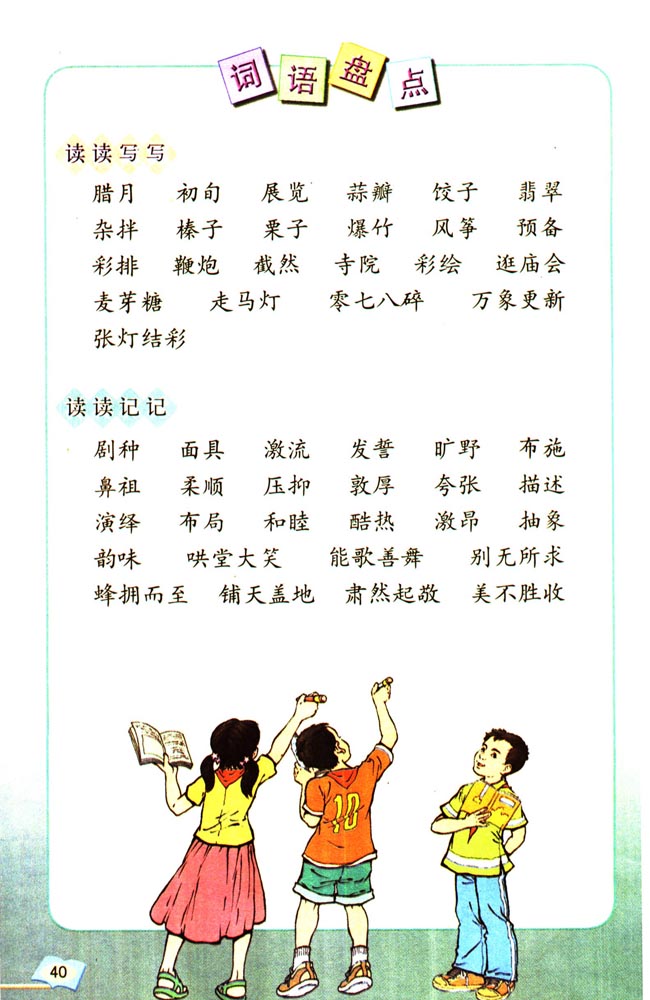 词语盘点
读读写写
腊月 初旬 展览 蒜瓣 饺子 翡翠
杂拌 榛子 栗子 爆竹 风筝 预备
彩排 鞭炮 截然 寺院 彩绘 逛庙会
麦芽糖 走马灯 零七八碎 万象更新
张灯结彩
读读记记
剧种 面具 激流 发誓 旷野 布施
鼻祖 柔顺 压抑 敦厚 夸张 描述
演绎 布局 和睦 酷热 激昂 抽象
韵味 哄堂大笑 能歌善舞 别无所求
蜂拥而至 铺天盖地 肃然起敬 美不胜收
10
40